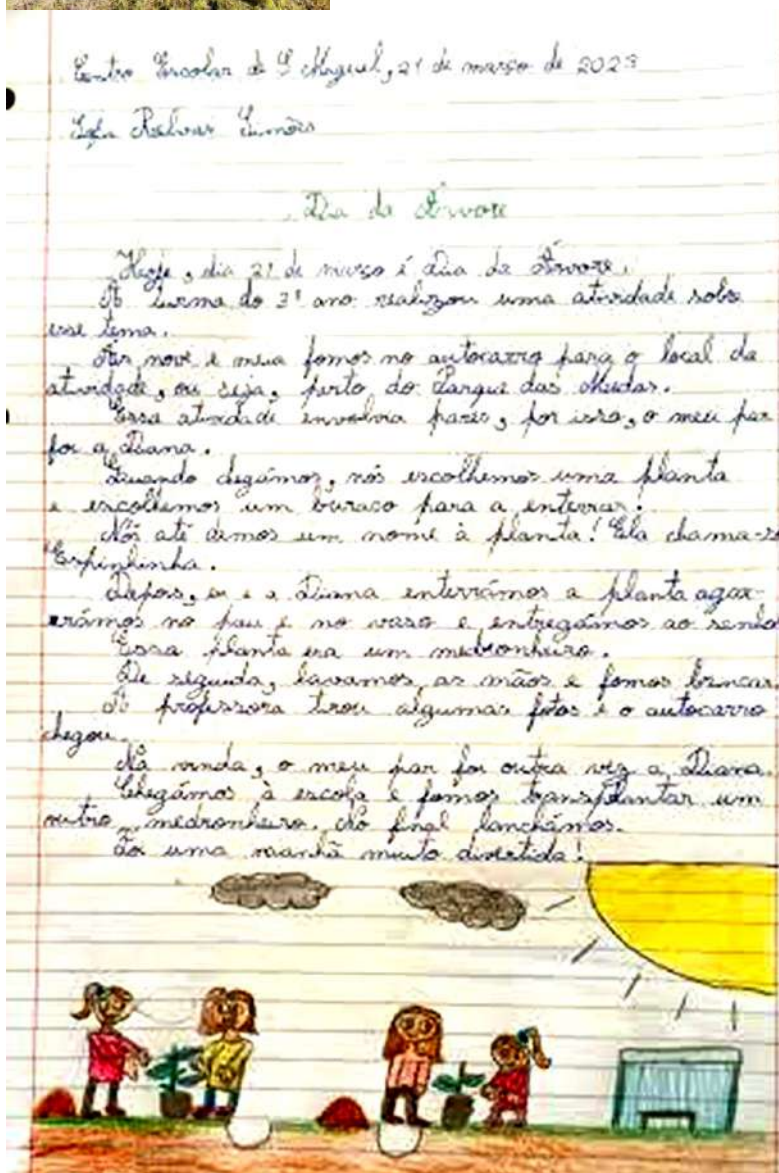 Centro Escolar de S Miguel, 21 de março de 2023
Simões
Dia da Árvore
Hoje, dia 21 de março é Dia da Árvore.
A turma do 3º ano realizou uma atividade sobre
esse tema.
Às nove e meia fomos no autocarro para o local da
atividade, ou seja, perto do Parque das Merendas.
Essa atividade envolvia pares, por isso, o meu par
foi a Diana.
Quando chegámos, nós escolhemos uma planta
e escolhemos um buraco para a enterrar.
Nós até demos um nome à planta! Ela chama-se
Espinhinha.
Depois, eu e a Diana enterrámos a planta agar-
rámos no pau e no vaso e entregámos ao senho
Essa planta era um medronheiro.
De seguida, lavamos as mãos e fomos brincar.
A professora tirou algumas fotos e o autocarro
chegou.
Na vinda, o meu par foi outra vez a Diana.
Chegámos à escola e fomos transplantar um
outro medronheiro. No final lanchámos.
Foi uma manhã muito divertida!